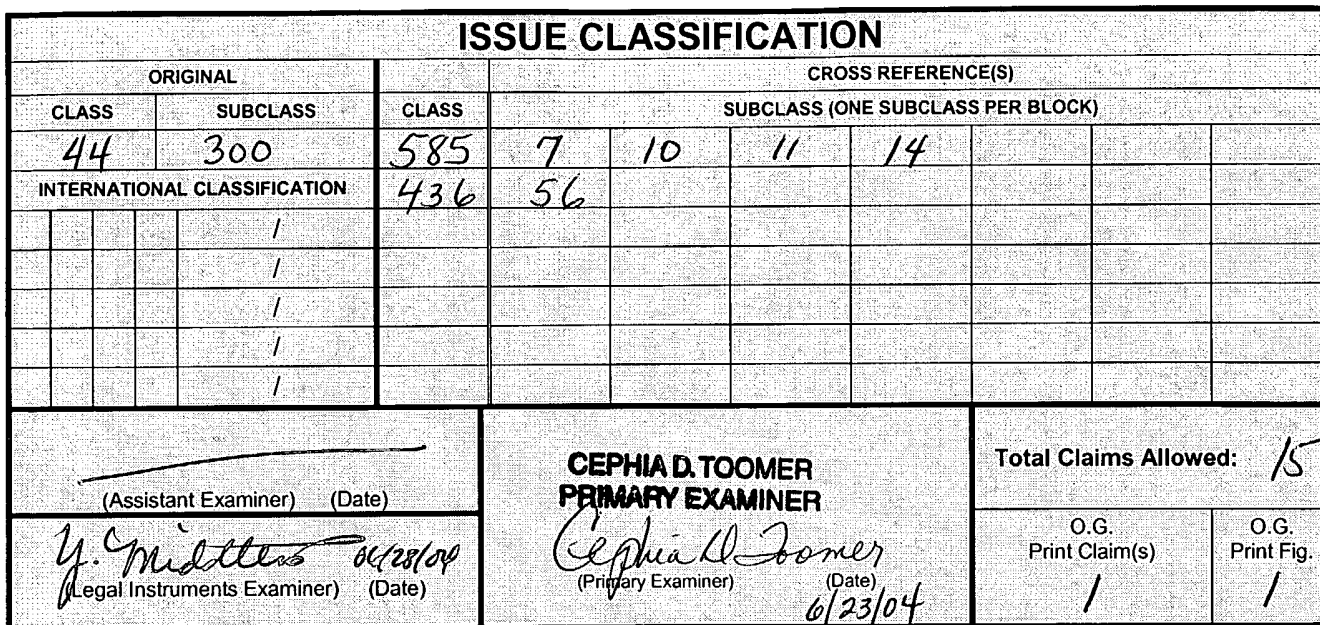 ISSUE CLASSIFICATION
ORIGINAL CROSS REFERENCE(S)
CLASS SUBCLASS CLASS SUBCLASS (ONE SUBCLASS PER BLOCK)
44 300 585 7 10 11 14
INTERNATIONAL CLASSIFICATION 436 56
/
/
/
/
/
(Assistant Examiner) (Date)
Y. 06/28/04
(Legal Instruments Examiner) (Date)
CEPHIA D. TOOMER
PRIMARY EXAMINER
Cephia D Toomer
(Primary Examiner) (Date)
6/23/04
Total Claims Allowed: 15
O.G. Print Claim(s) O.G. Print Fig.
1 1